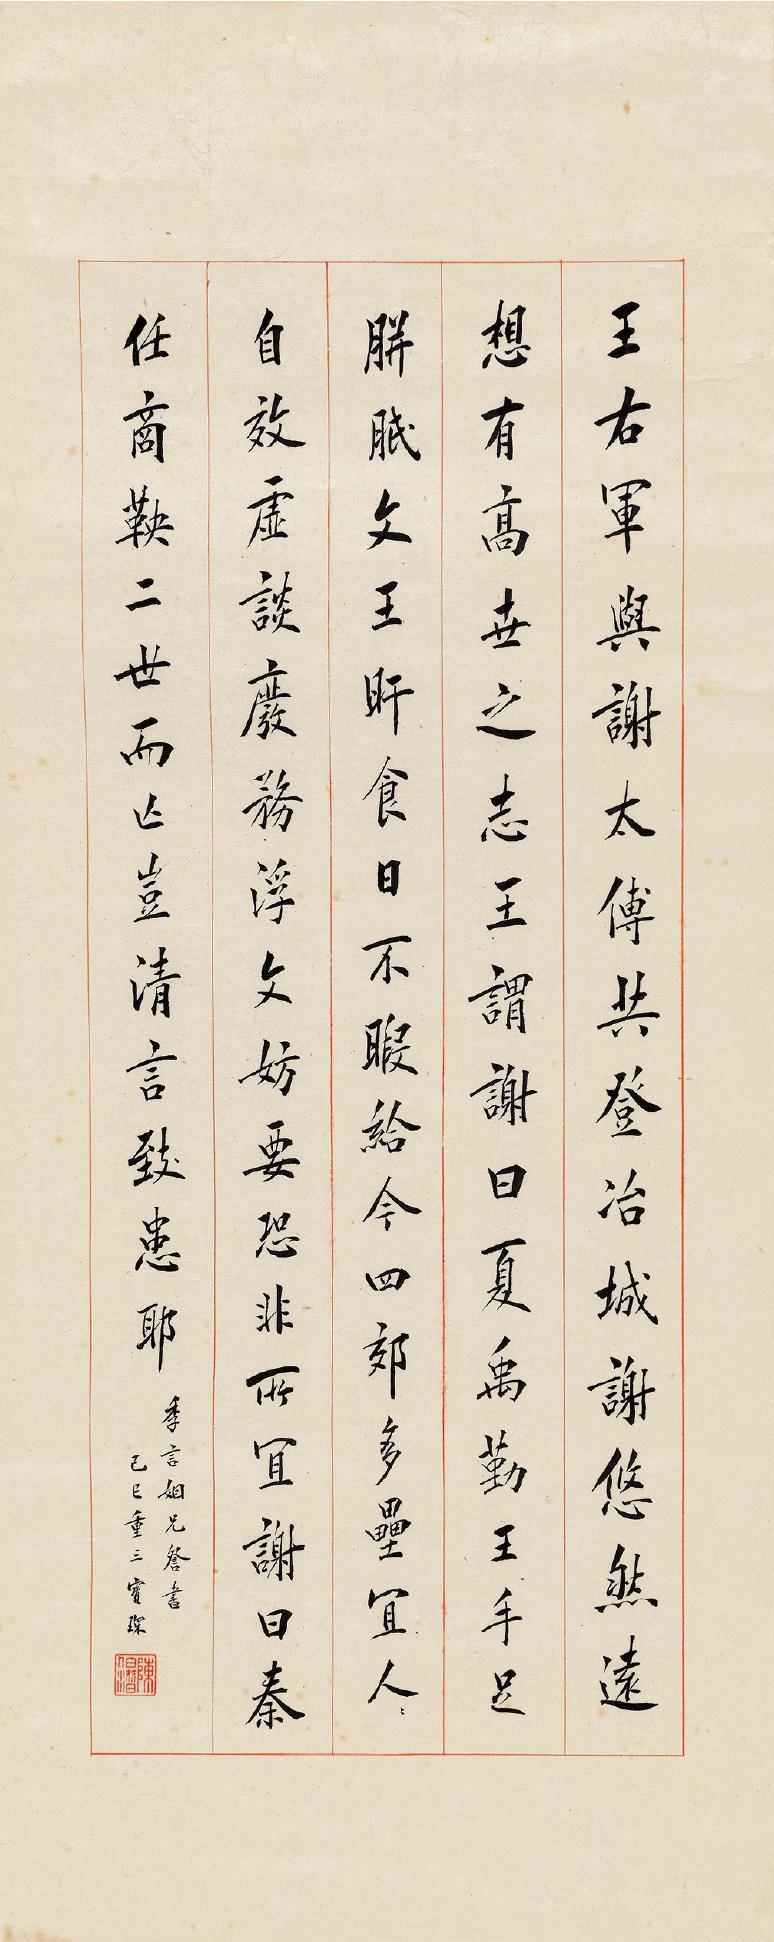 王右軍與謝太傅共登冶城謝悠然遠
想有高世之志王謂謝曰夏禹勤王手足
胼胝文王旰食日不暇給今四郊多壘宜人〻
自效虛談廢務浮文妨要恐非所宜謝曰秦
任商鞅二世而亡豈清言致患耶
季言姻兄詧書
己巳重三寶琛
陳